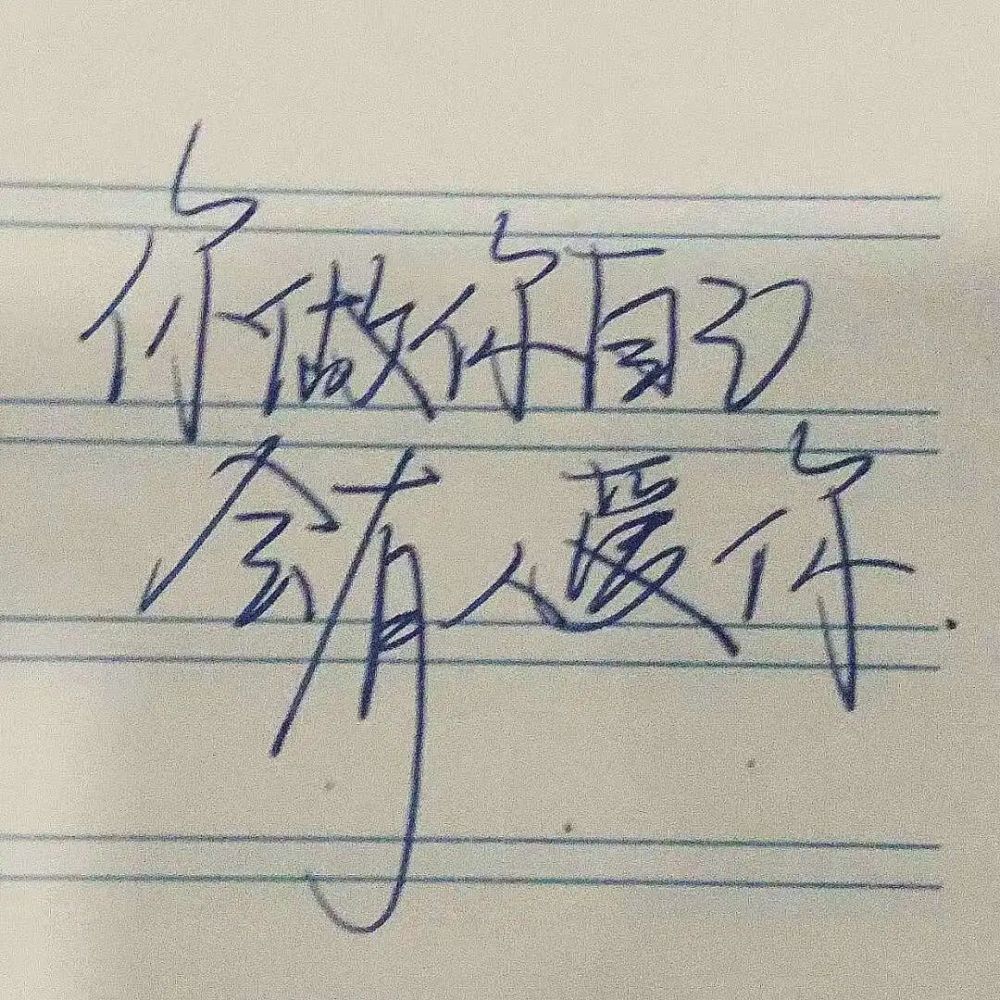 你做你自己
会有人爱你.